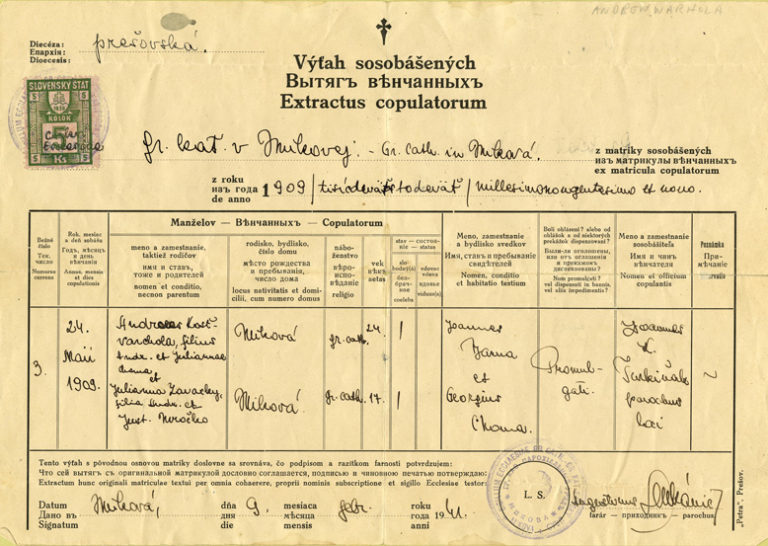 ANDREW WARHOLA
Diecéza:
Епархія:
Dioecesis:
prešovská.
Výťah sosobášených
Вытягъ вѣнчанныхъ
Extractus copulatorum
SLOVENSKÝ ŠTÁT
5 5
KOLOK
5
Ks
gr. kat. v Mikovej. - Gr. Cath. in Miková.
z matriky sosobášených
изъ матрикулы вѣнчанныхъ
ex matricula copulatorum
z roku
изъ года
de anno
1909 / tisícdeväťstodeväť / millesimonongentesimo et nono.
Manželov — Вѣнчанныхъ — Copulatorum
Bežné číslo
Тек. число
Numerus currens
Rok, mesiac a deň sobášu
Годъ, мѣсяцъ и день вѣнчанія
Annus, mensis et dies copulationis
meno a zamestnanie, taktiež rodičov
имя и ставъ, тоже и родителей
nomen et conditio, necnon parentum
rodisko, bydlisko, číslo domu
мѣсто рождества и пребыванія, число дома
locus nativitatis et domicilii, cum numero domus
náboženstvo
вѣроисповѣданіе
religio
vek
вѣкъ
aetas
stav — состояніе — status
slobodný(á)
безбрачное
coelebs
vdovec
vdova
вдовье
viduus(a)
Meno, zamestnanie a bydlisko svedkov
Имя, ставъ и пребываніе свидѣтелей
Nomen, conditio et habitatio testium
Boli ohlášení? alebo od ohlášok a od niektorých prekážok dispenzovaní?
Были-ли оголошены, или отъ оглашенія и препонъ диспензованы?
Num promulgati? vel dispensati in bannis, vel aliis impedimentis?
Meno a zamestnanie sosobášiteľa
Имя и чинъ вѣнчателя
Nomen et officium copulantis
Poznámka
Примѣчаніе
3.
24.
Maii
1909.
Andreas
Varchola, filius
Andr. et Julianna
et
Julianna Zavacky,
filia Andr. et
Just. Mročko
Miková
Miková.
gr. cath.
gr. cath.
24.
17.
1
1
Joannes
Varna
et
Georgius
Choma.
Promul-
gati.
Joannes
parochus
loci
~
Tento výťah s pôvodnou osnovou matriky doslovne sa srovnáva, čo podpisom a razítkom farnosti potvrdzujem:
Что сей вытягъ съ оригинальной матрикулой дословно соглашается, подписью и чиновною печатью потверждаю:
Extractum hunc originali matriculae textui per omnia cohaerere, proprii nominis subscriptione et sigillo Ecclesiae testor:
Datum
Дано въ
Signatum
Miková,
dňa
дня
die
9.
mesiaca
мѣсяца
mensis
febr.
roku
года
anni
1941.
L. S.
farár — приходникъ — parochus
„Petra", Prešov.